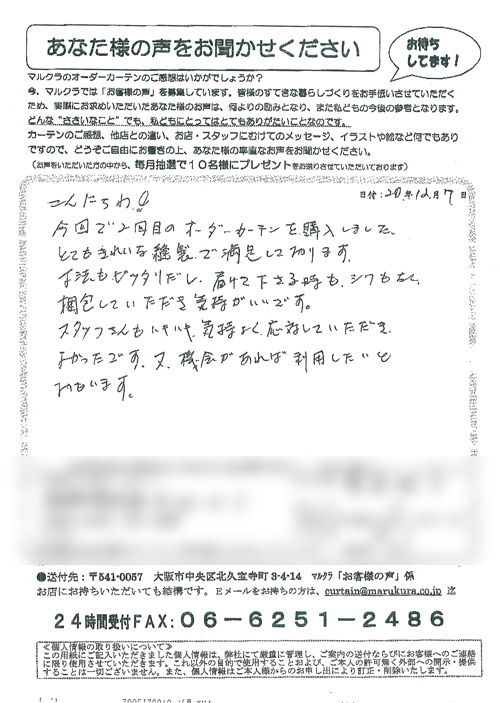 あなた様の声をお聞かせください
お待ち
してます!
マルクラのオーダーカーテンのご感想はいかがでしょうか?
今、マルクラでは「お客様の声」を募集しています。皆様のすてきな暮らしづくりをお手伝いさせていただく
ため、実際にお求めいただいたあなた様のお声は、何よりの励みとなり、また私どもの今後の参考となります。
どんな“ささいなこと”でも、私どもにとってはとてもありがたいことなのです。
カーテンのご感想、他店との違い、お店・スタッフにむけてのメッセージ、イラストや絵など何でもあり
ですので、どうぞご自由にお書きの上、あなた様の率直なお声をお聞かせください。
(お声をいただいた方の中から、毎月抽選で10名様にプレゼントをお送りさせていただいております)
日付:20年12月7日
こんにちわ!
今回で2回目のオーダーカーテンを購入しました。
とてもきれいな縫製で満足しております。
寸法もピッタリだし、届けて下さる時も、シワもなく
梱包していただき気持がいいです。
スタッフさんもハキハキ、気持よく応対していただき、
よかったです。又、機会があれば利用したいと
おもいます。
●送付先:〒541-0057 大阪市中央区北久宝寺町3-4-14 マルクラ「お客様の声」係
お店にお持ちいただいても結構です。Eメールをお持ちの方は、curtain@marukura.co.jp 迄
24時間受付FAX:06-6251-2486
≪個人情報の取り扱いについて≫
この用紙にご記入いただきました個人情報は、弊社にて厳重に管理し、ご案内の送付ならびにお客様へのご連絡
に限り使用させていただきます。これ以外の目的で使用することおよび、ご本人の許可無く外部への開示・提供
することは一切ございません。また、個人情報はご本人様からのお申し出により訂正・削除いたします。